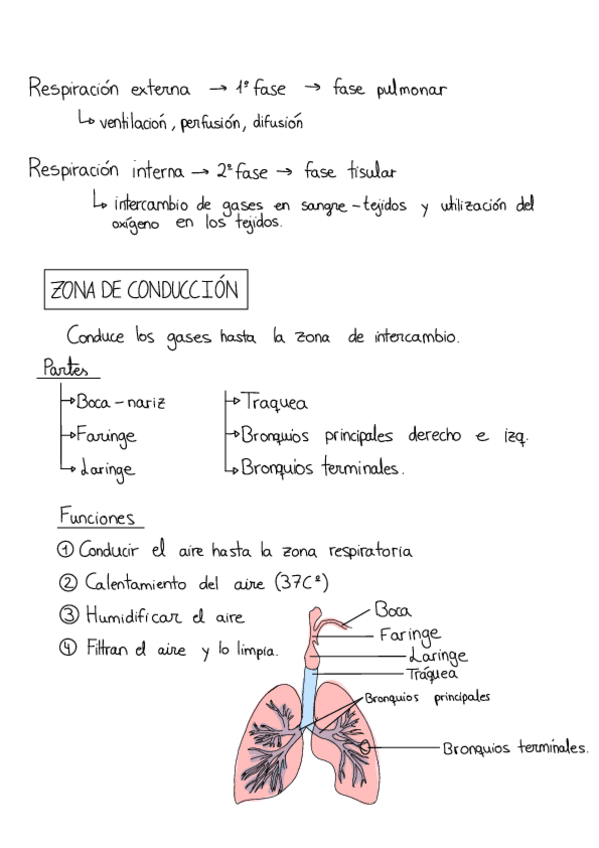 Respiración externa → 1ª fase → fase pulmonar
↳ ventilación, perfusión, difusión
Respiración interna → 2ª fase → fase tisular
↳ intercambio de gases en sangre - tejidos y utilización del
oxígeno en los tejidos.
ZONA DE CONDUCCIÓN
Conduce los gases hasta la zona de intercambio.
Partes
→ Boca - nariz
→ Faringe
→ Laringe
→ Traquea
→ Bronquios principales derecho e izq.
→ Bronquios terminales.
Funciones
① Conducir el aire hasta la zona respiratoria
② Calentamiento del aire (37Cº)
③ Humidificar el aire
④ Filtran el aire y lo limpia.
Boca
Faringe
Laringe
Tráquea
Bronquios principales
Bronquios terminales.